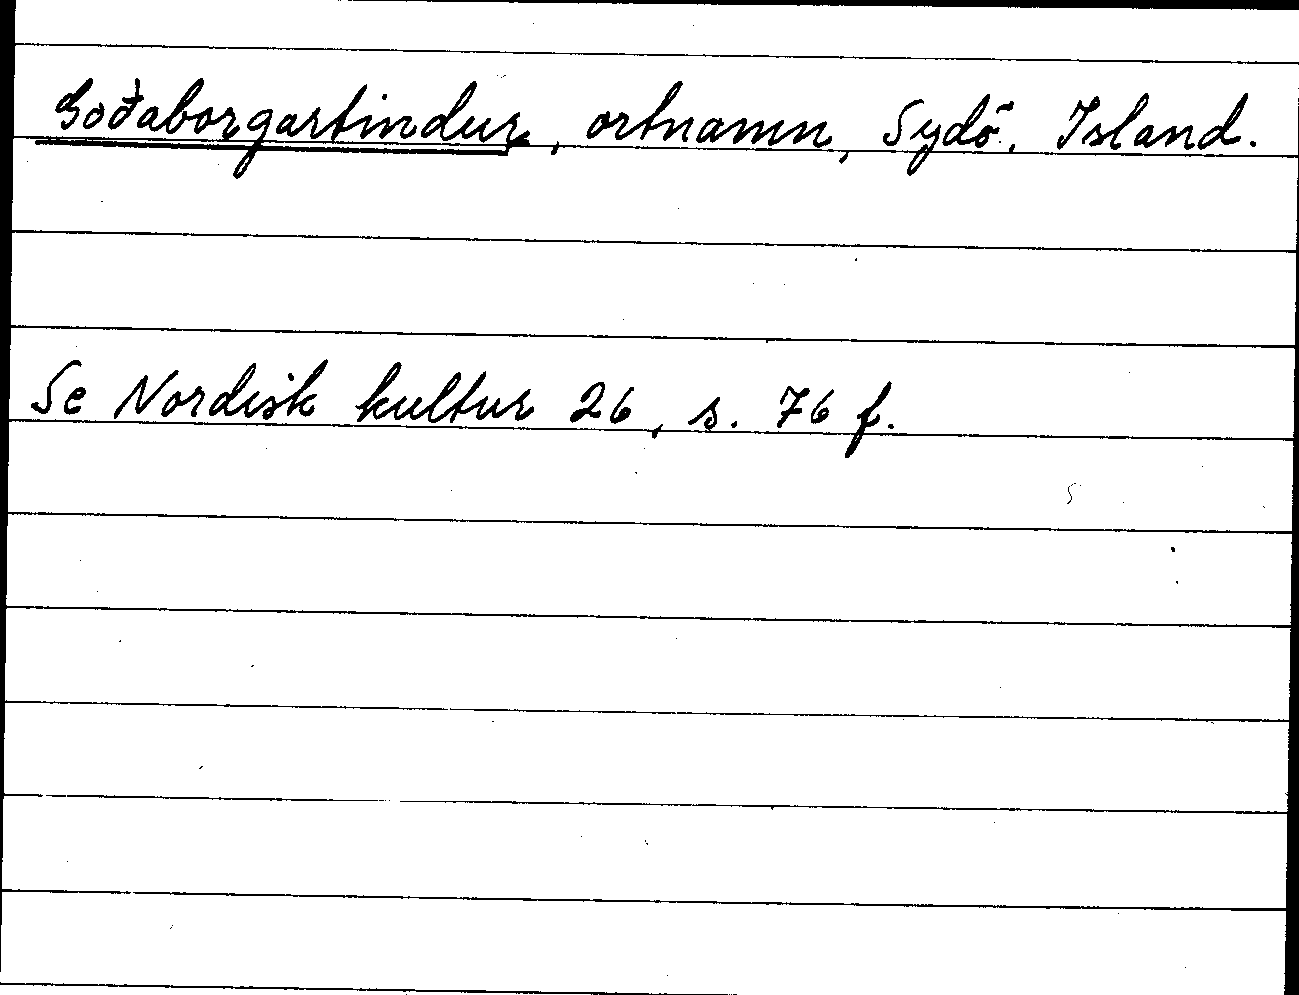 Goðaborgartindur, ortnamn, Sydö. Island.
Se Nordisk kultur 26, s. 76 f.